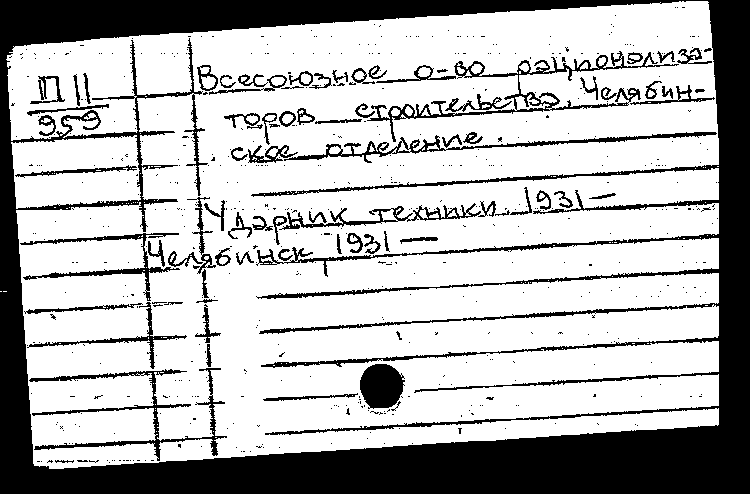 П II
959
Всесоюзное о-во рационализа-
торов строительства. Челябин-
ское отделение.
Ударник техники. 1931—
Челябинск, 1931—